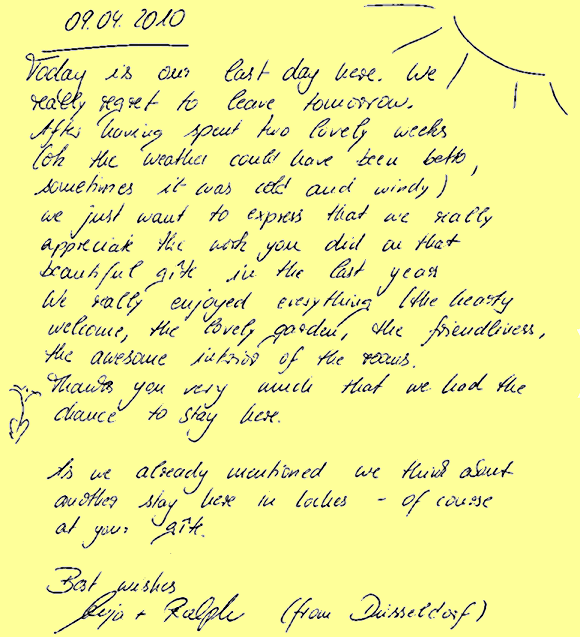 09.04.2010
Today is our last day here. We
really regret to leave tomorrow.
After having spent two lovely weeks
(oh the weather could have been better,
sometimes it was cold and windy)
we just want to express that we really
appreciate the work you did on that
beautiful gîte in the last years
We really enjoyed everything (the hearty
welcome, the lovely garden, the friendliness,
the awesome interior of the rooms.
Thanks you very much that we had the
chance to stay here.
As we already mentioned we think about
another stay here in Loches - of course
at your gîte.
Best wishes
+ Ralph (from Düsseldorf)